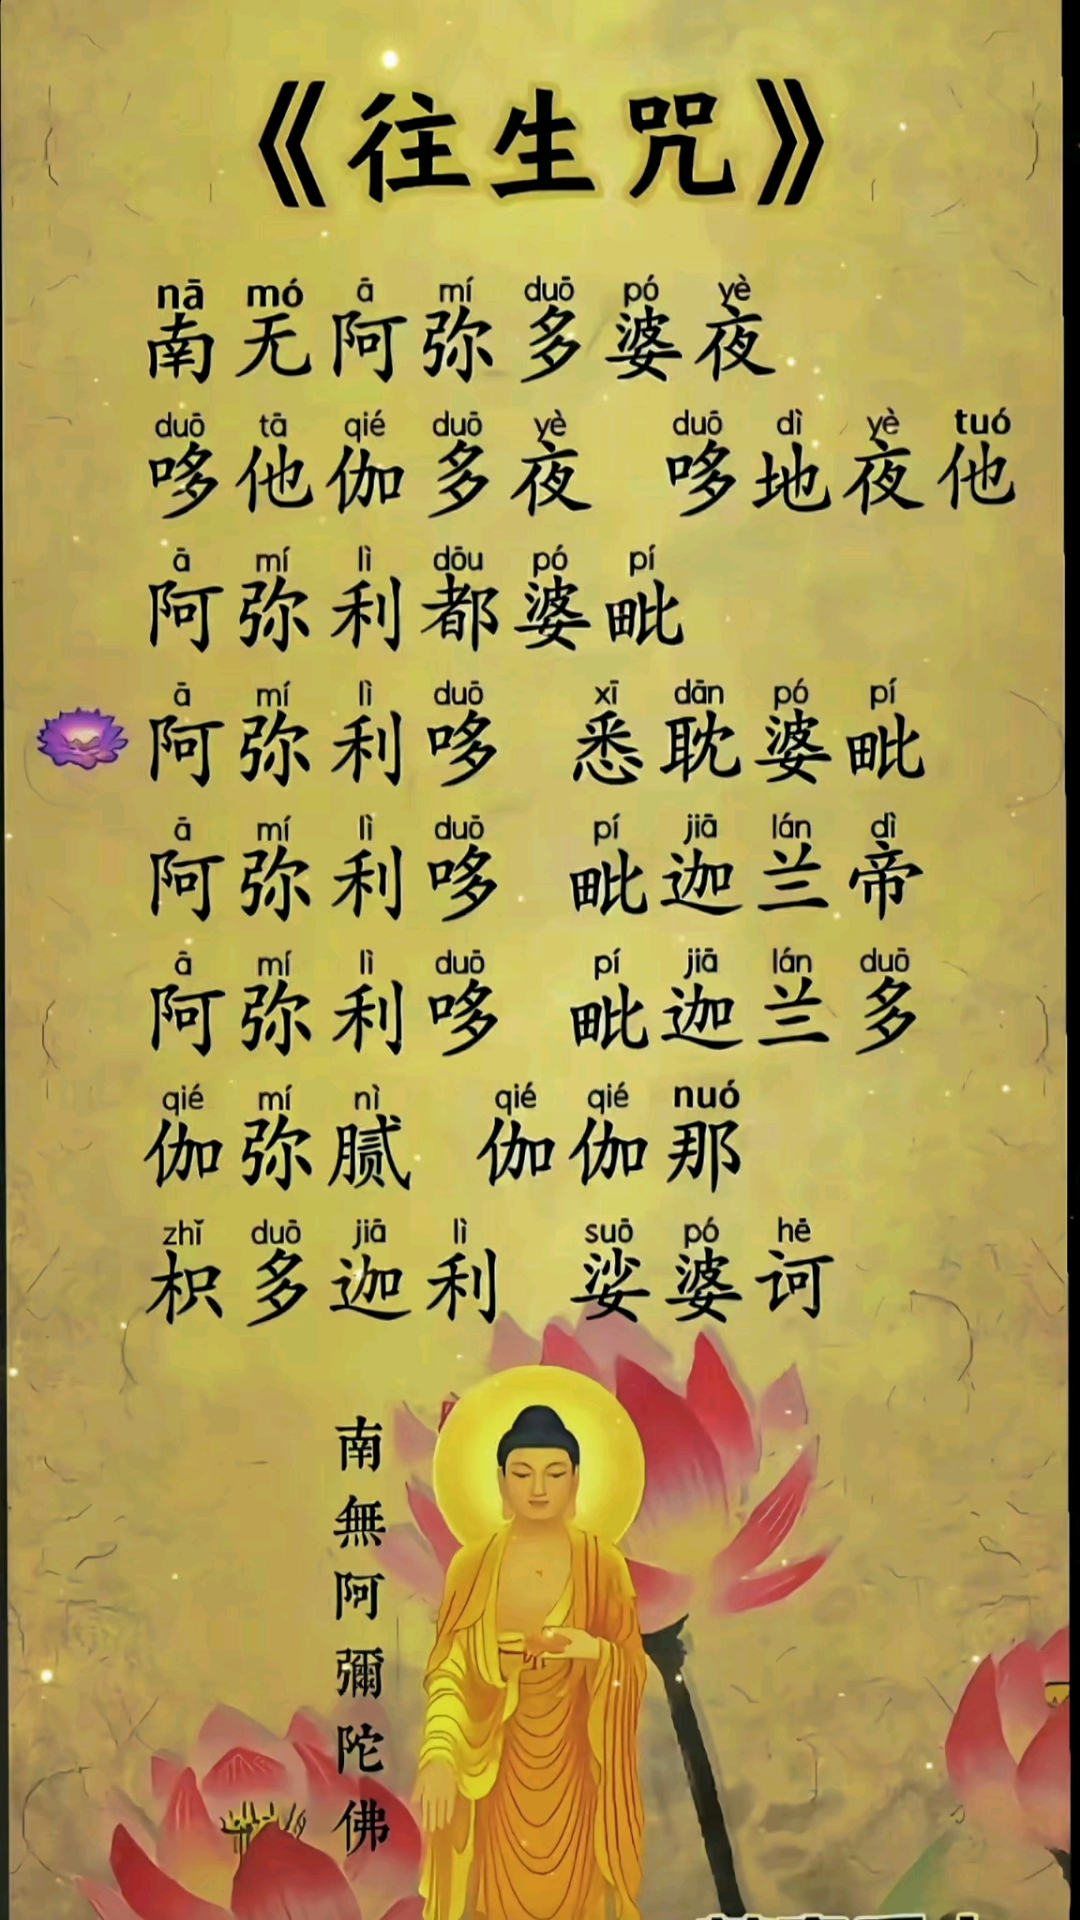 《往生咒》
nā mó ā mí duō pó yè
南无阿弥多婆夜
duō tā qié duō yè duō dì yè tuó
哆他伽多夜 哆地夜他
ā mí lì dōu pó pí
阿弥利都婆毗
ā mí lì duō xī dān pó pí
阿弥利哆 悉耽婆毗
ā mí lì duō pí jiā lán dì
阿弥利哆 毗迦兰帝
ā mí lì duō pí jiā lán duō
阿弥利哆 毗迦兰多
qié mí nì qié qié nuó
伽弥腻 伽伽那
zhǐ duō jiā lì suō pó hē
枳多迦利 娑婆诃
南無阿彌陀佛